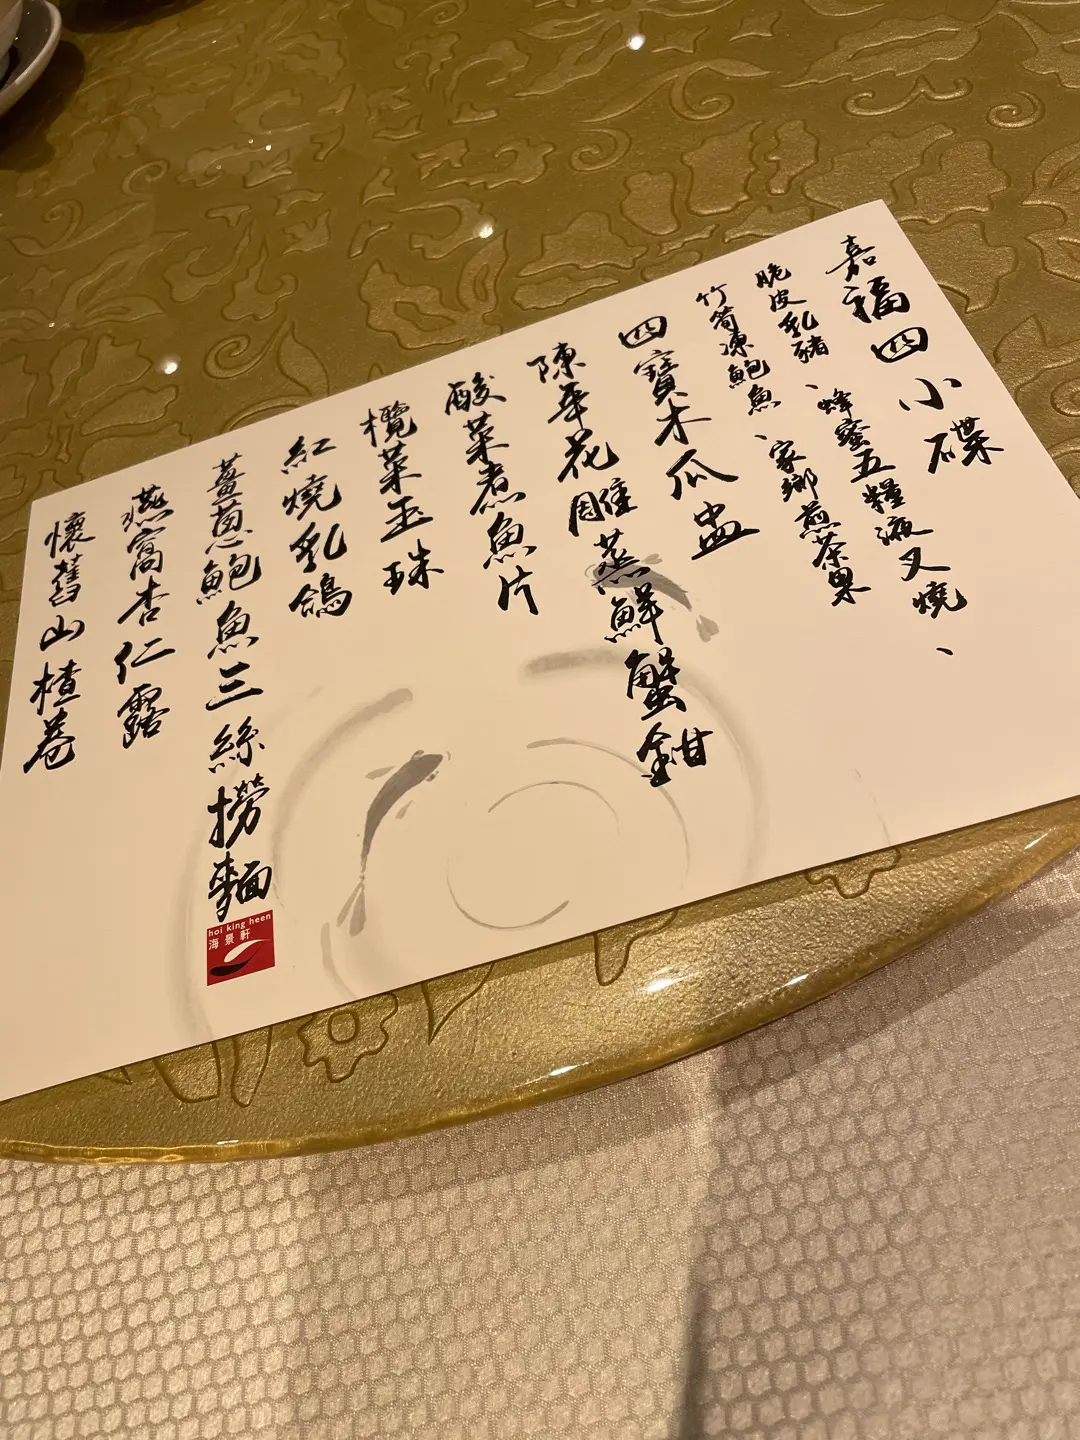 嘉福四小碟
脆皮乳豬、蜂蜜五糧液叉燒、
竹筍凍鮑魚、家鄉煎茶果
四寶木瓜盅
陳年花雕蒸鮮蟹鉗
酸菜煮魚片
欖菜玉珠
紅燒乳鴿
薑蔥鮑魚三絲撈麵
燕窩杏仁露
懷舊山楂卷
hoi king heen
海景軒